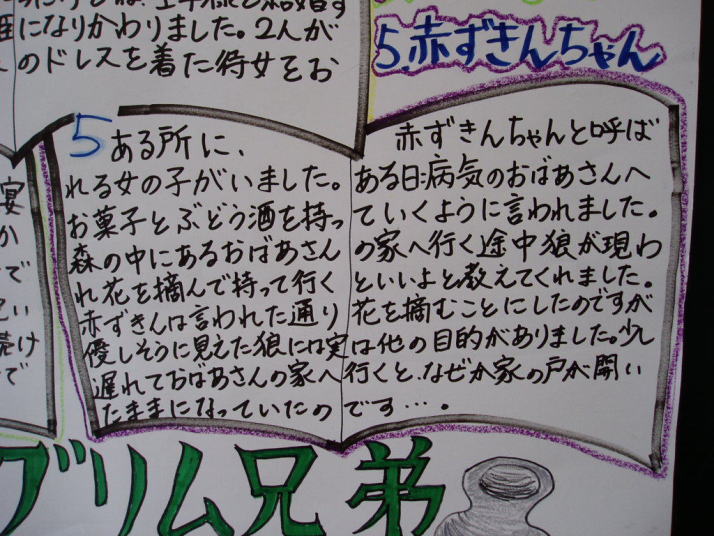 になりかわりました。2人が
のドレスを着た侍女をお
5.赤ずきんちゃん
5 ある所に、赤ずきんちゃんと呼ば
れる女の子がいました。ある日病気のおばあさんへ
お菓子とぶどう酒を持っていくように言われました。
森の中にあるおばあさんの家へ行く途中狼が現わ
れ花を摘んで持って行くといいよと教えてくれました。
赤ずきんは言われた通り花を摘むことにしたのですが
優しそうに見えた狼には実は他の目的がありました。少し
遅れておばあさんの家へ行くと、なぜか家の戸が開い
たままになっていたのです…。
グリム兄弟